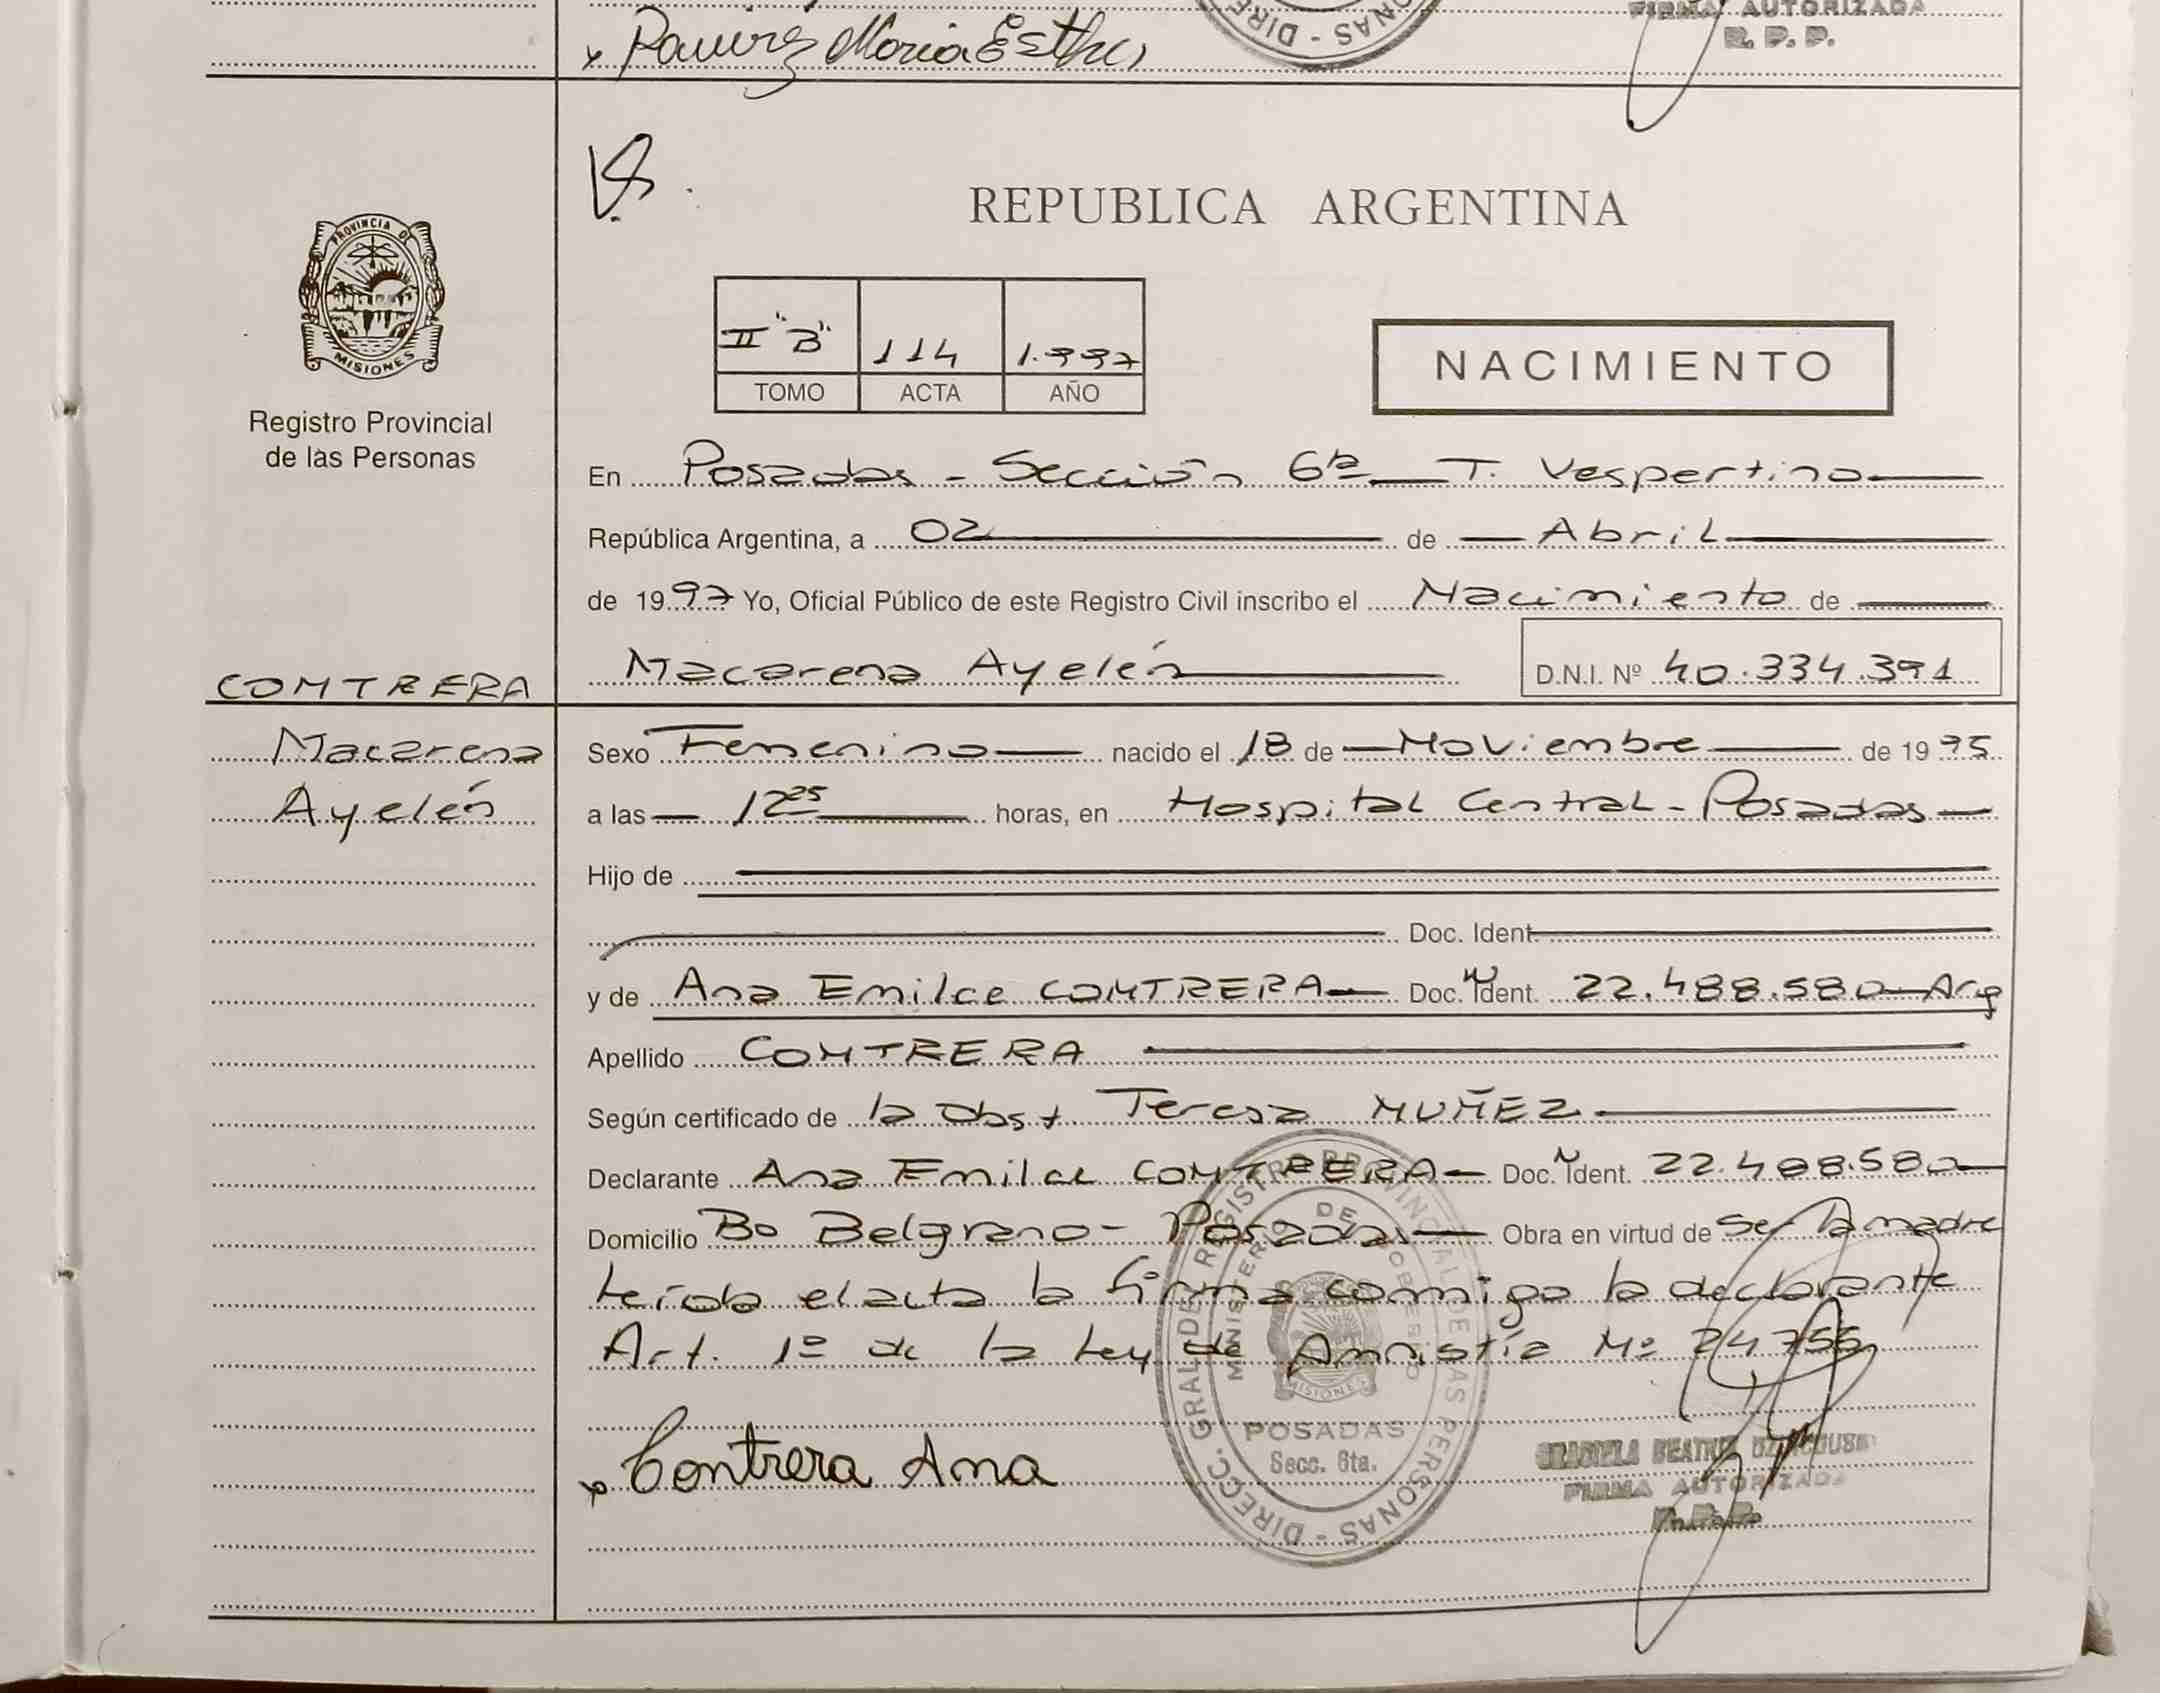 Ramirez Maria Esther
DIRE
NAS - DIRE
FIRMA AUTORIZADA
R. P. P.
REPUBLICA ARGENTINA
PROVINCIA DE
MISIONES
Registro Provincial
de las Personas
II "B" 114 1.997
TOMO ACTA AÑO
NACIMIENTO
En Posadas - Sección 6ta T. Vespertino
República Argentina, a 02 de Abril
de 1997 Yo, Oficial Público de este Registro Civil inscribo el Nacimiento de
CONTRERA
Macarena Ayelén D.N.I. Nº 40.334.391
Macarena
Ayelén
Sexo Femenino nacido el 18 de Noviembre de 1995
a las 12 25 horas, en Hospital Central - Posadas
Hijo de
Doc. Ident.
y de Ana Emilce CONTRERA Doc. N Ident. 22.488.580 Arg
Apellido CONTRERA
Según certificado de la Obst. Teresa NUÑEZ
Declarante Ana Emilce CONTRERA Doc. N Ident. 22.488.580
Domicilio Bo Belgrano - Posadas Obra en virtud de Ser la madre
Leída el acta la firma conmigo la declarante
Art. 1º de la Ley de Amnistía Nº 24755
Contrera Ana
DIRECC. GRAL. DE REGISTRO PROVINCIAL DE LAS PERSONAS
MINISTERIO DE GOBIERNO
MISIONES
POSADAS
Secc. 6ta.
GRACIELA BEATRIZ
FIRMA AUTORIZADA
R. P. P.